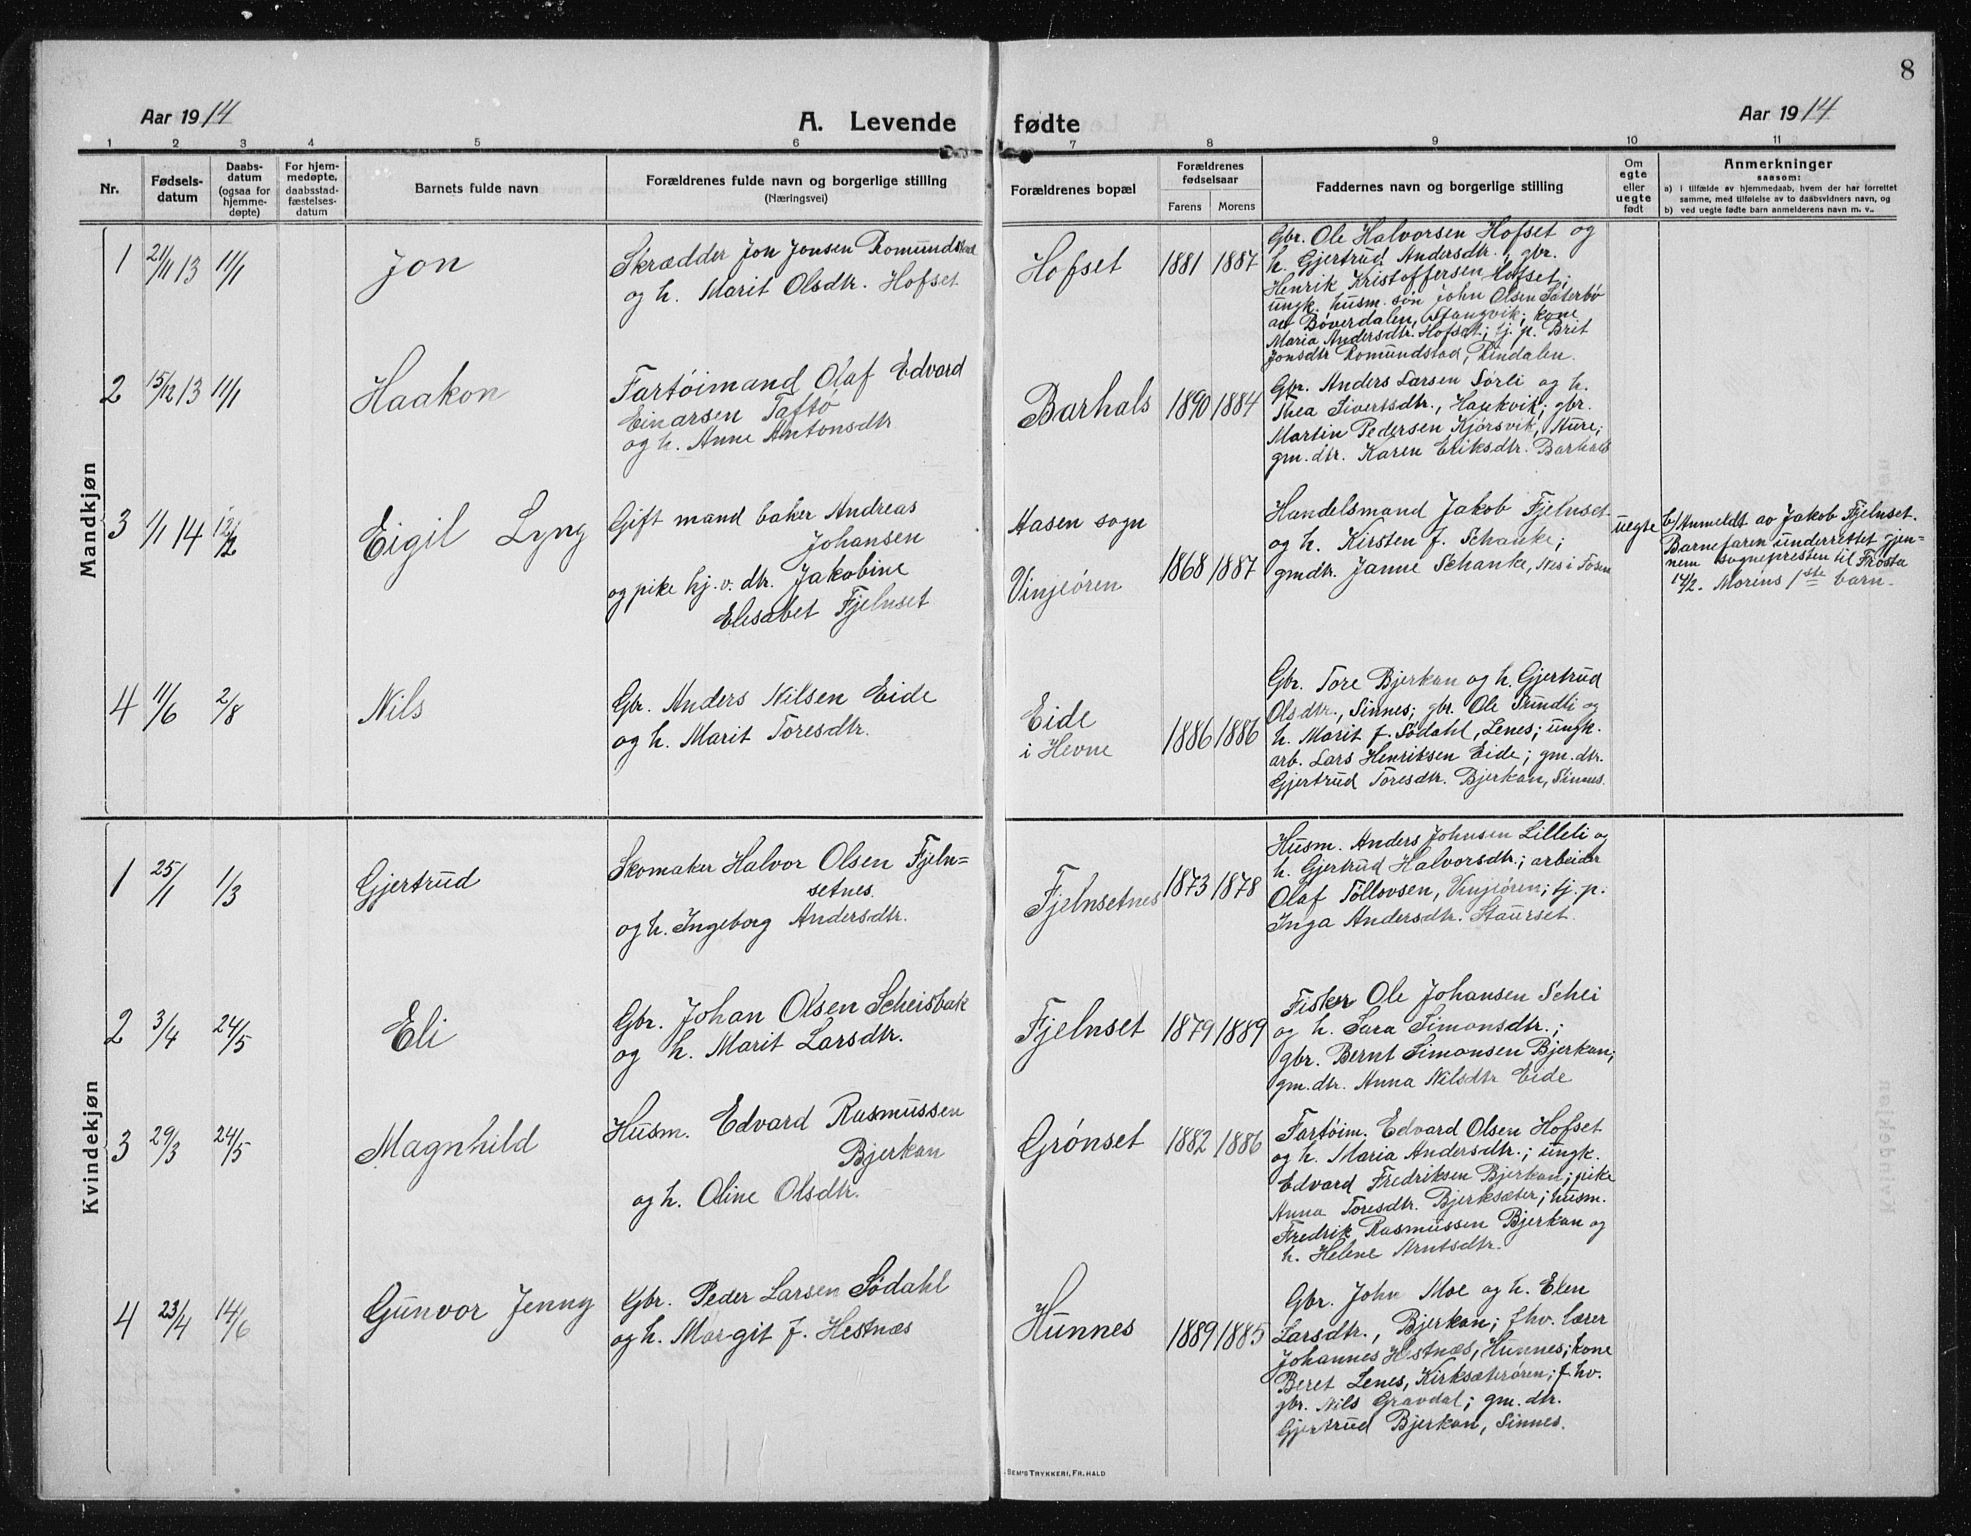 8
Aar 1914
A. Levende fødte
Aar 1914
1 2 3 4 5 6 7 8 9 10 11
Nr.
Fødsels-
datum
Daabs-
datum
(ogsaa for
hjemme-
døpte)
For hjem-
medøpte,
daabsstad-
fæstelses-
datum
Barnets fulde navn
Forældrenes fulde navn og borgerlige stilling
(Næringsvei)
Forældrenes bopæl
Forældrenes
fødselsaar
Farens Morens
Faddernes navn og borgerlige stilling
Om
egte
eller
uegte
født
Anmerkninger
saasom:
a) i tilfælde av hjemmedaab, hvem der har forrettet
samme, med tilføielse av to daabsvidners navn, og
b) ved uegte fødte barn anmelderens navn m. v.
Mandkjøn
1 21/11 13 11/1 Jon
Skrædder Jon Jonsen Romundstad
og h. Marit Olsdtr. Hofset
Hofset 1881 1887
Gbr. Ole Halvorsen Hofset og
h. Gjertrud Andersdtr., gbr.
Henrik Kristoffersen Hofset;
ungk. husm. søn John Olsen Säterbø
av Bøverdalen, Stangvik; kone
Maria Andersdtr. Hofset; tj. p. Brit
Jonsdtr Romundstad, Rindalen.
2 15/12 13 11/1 Haakon
Fartøimand Olaf Edvard
Einarsen Taftø
og h. Anne Antonsdtr
Barhals 1890 1884
Gbr. Anders Larsen Sørli og h.
Thea Sivertsdtr., Haukvik; gbr.
Martin Pedersen Kjørsvik, Aure;
gm. dtr. Karen Eriksdtr. Barhals
3 1/1 14 12/2 Eigil Lyng
Gift mand baker Andreas
Johansen
og pike hj. v. dtr. Jakobine
Elisabet Fjelnset
Aasen sogn
Vinjeøren
1868 1887
Handelsmand Jakob Fjelnset
og h. Kirsten f. Schanke;
gmdtr. Janne Schanke, Nes i Fosen
uegte
b/Anmeldt av Jakob Fjelnset.
Barnefaren underrettet gjen-
nem sognepresten til Frosta
14/2. Morens 1ste barn.
4 11/6 2/8 Nils
Gbr. Anders Nilsen Eide
og h. Marit Toresdtr.
Eide
i Hevne
1886 1886
Gbr. Tore Bjerkan og h. Gjertrud
Olsdtr., Sinnes; gbr. Ole Trindli og
h. Marit f. Sødahl, Lenes; ungk.
arb. Lars Henriksen Eide; gm. dtr.
Gjertrud Toresdtr. Bjerkan, Sinnes.
Kvindekjøn
1 25/1 1/3 Gjertrud
Skomaker Halvor Olsen Fjeln-
setnes.
og h. Ingeborg Andersdtr.
Fjelnsetnes 1873 1878
Husm. Anders Johnsen Lilleli og
h. Gjertrud Halvorsdtr.; arbeider
Olaf Tollovsen, Vinjeøren; tj. p.
Inga Andersdtr. Staurset.
2 3/4 24/5 Eli
Gbr. Johan Olsen Scheisbak
og h. Marit Larsdtr.
Fjelnset 1879 1889
Fisker Ole Johansen Schei
og h. Sara Simonsdtr.;
gbr. Bernt Simonsen Bjerkan;
gm. dtr. Anna Nilsdtr Eide
3 29/3 24/5 Magnhild
Husm. Edvard Rasmussen
Bjerkan
og h. Oline Olsdtr.
Grønset 1882 1886
Fartøim. Edvard Olsen Hofset
og h. Maria Andersdtr.; ungk.
Edvard Fredriksen Bjerkan; pike
Anna Toresdtr. Bjerksæter; husm.
Fredrik Rasmussen Bjerkan og
h. Helene Arntsdtr.
4 23/4 14/6 Gunvor Jenny
Gbr. Peder Larsen Sødahl
og h. Margit f. Hestnæs
Hunnes 1889 1885
Gbr. John Moe og h. Elen
Larsdtr., Bjerkan; fhv. lærer
Johannes Hestnæs, Hunnes; kone
Beret Lenes, Kirksæterøren; f. hv.
gbr. Nils Gravdal; gm. dtr.
Gjertrud Bjerkan, Sinnes.
SEM'S TRYKKERI, FR. HALD